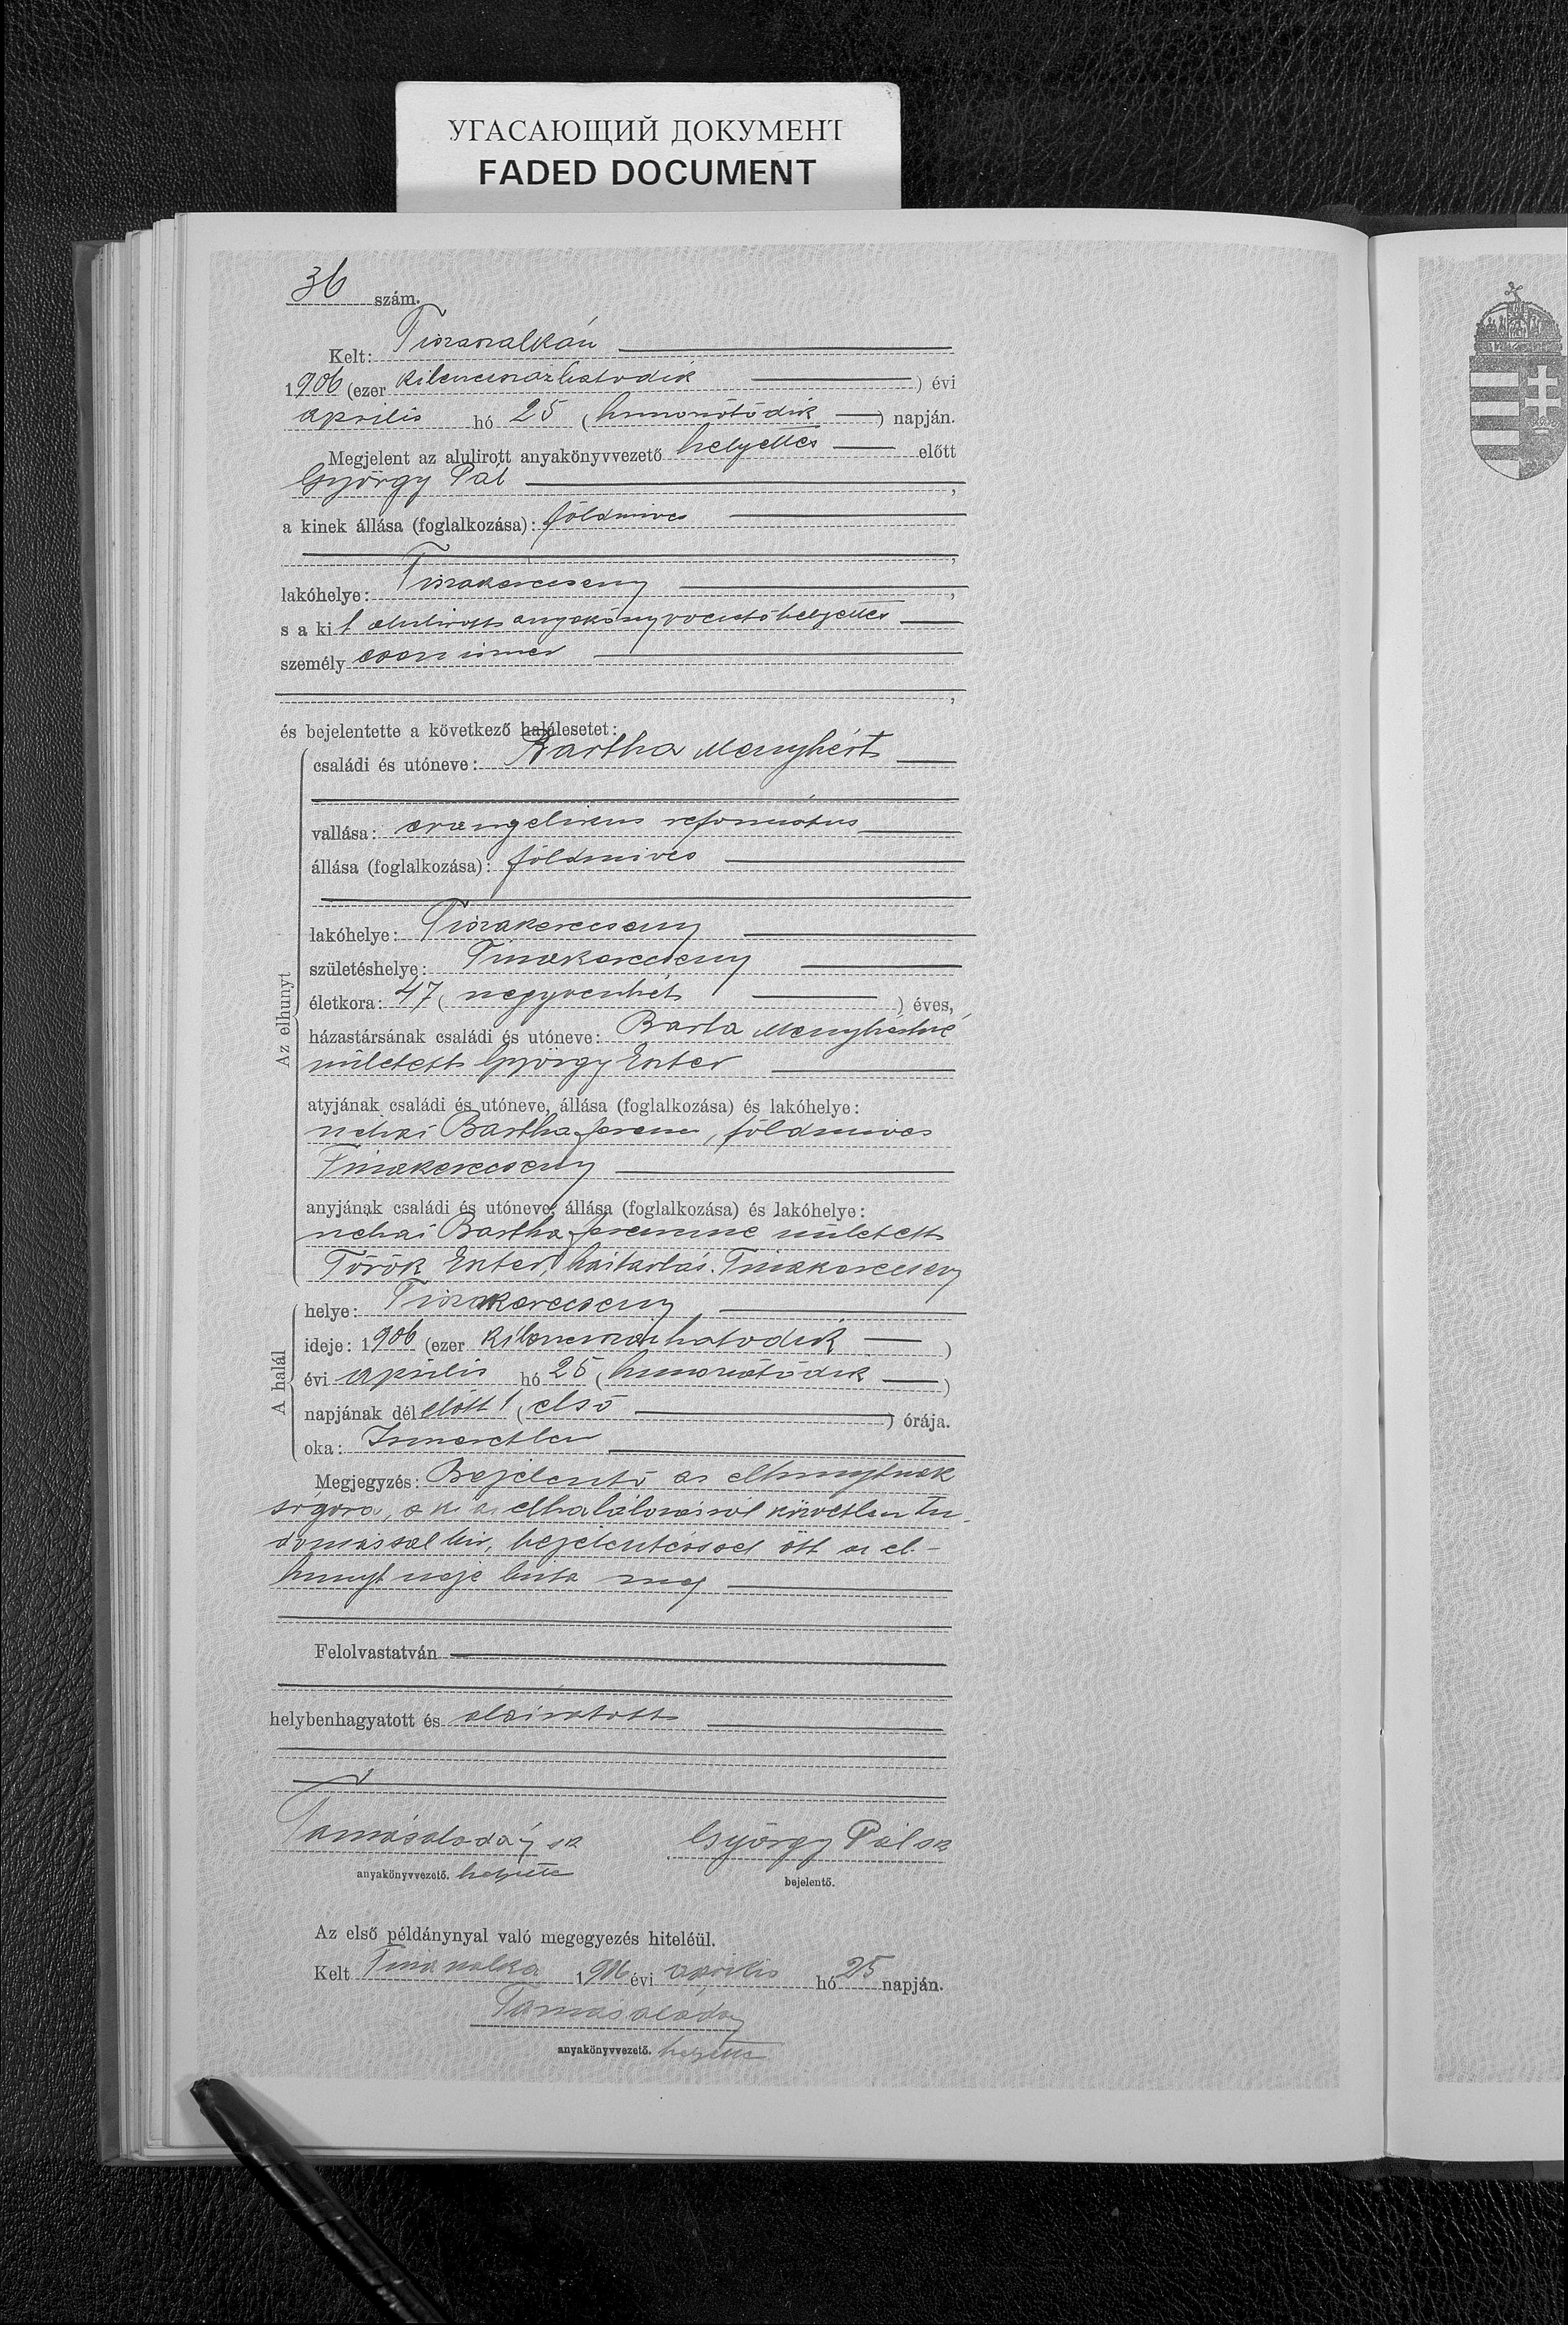 УГАСАЮЩИЙ ДОКУМЕНТ
FADED DOCUMENT
36 szám.
Kelt: Tiszaszalkán
1906 (ezer kilencszázhatodik ) évi
április hó 25 (huszonötödik ) napján.
Megjelent az alulirott anyakönyvvezető helyettes előtt
György Pál ,
a kinek állása (foglalkozása): földmives
,
lakóhelye: Tiszakerecseny ,
s a kit alulirott anyakönyvvezető helyettes
személy esen ismer
,
és bejelentette a következő halálesetet:
Az elhunyt
családi és utóneve: Bartha Menyhért
vallása: evangelicus reformatus
állása (foglalkozása): földmives
lakóhelye: Tiszakerecseny
születéshelye: Tiszakerecseny
életkora: 47 ( negyvenhét ) éves,
házastársának családi és utóneve: Barta Menyhértné
született György Eszter
atyjának családi és utóneve, állása (foglalkozása) és lakóhelye:
néhai Bartha Ferenc, földmives
Tiszakerecseny
anyjának családi és utóneve, állása (foglalkozása) és lakóhelye:
néhai Bartha Ferencné született
Török Eszter, háztartás. Tiszakerecseny
A halál
helye: Tiszakerecseny
ideje: 1906 (ezer kilencszázhatodik )
évi április hó 25 (huszonötödik )
napjának dél előtt 1 ( első ) órája.
oka: Ismeretlen
Megjegyzés: Bejelentő az elhunytnak
sógora, a ki az elhalálozásról közvetlen tu-
domással bir, bejelentéssel őtt az el-
hunyt neje bizta meg
Felolvastatván
helybenhagyatott és aláiratott
Tamás aladáry sk György Pál sk
anyakönyvvezető. helyettes bejelentő.
Az első példánynyal való megegyezés hiteléül.
Kelt Tiszaszalka 1906 évi április hó 25 napján.
anyakönyvvezető. helyettes